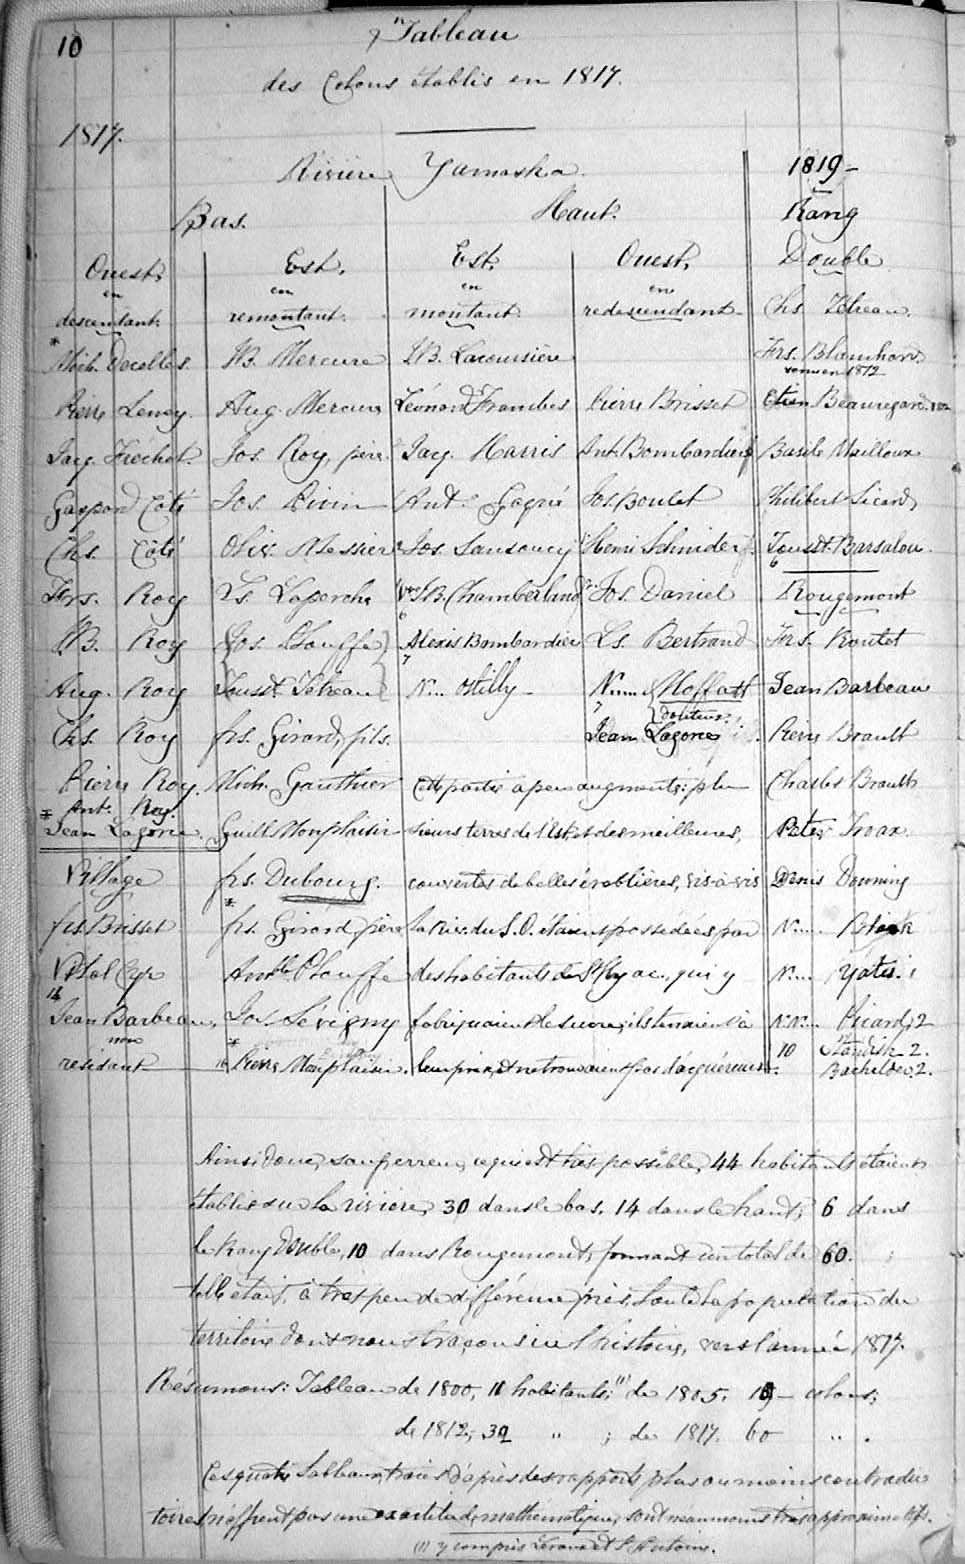 10
Tableau
des Colons établis en 1817.
1817.
Rivière Yamaska
1819-
Bas. Haut. Rang
Ouest, Est, Est, Ouest, Double
en en en en
descendant. remontant. montant redescendant. Chs. Tétreau.
Mich. Decelles. JB. Mercure JB. Lacoursière Frs. Blanchard.
venu en 1812
Pierre Aug. Mercure Léonard Frambes Pierre Brisset Beauregard
Jacq. Fréchet. Jos. Roy, père Jacq. Harris Ant. Bombardier Basile Mailloux
Gaspard Côté Jos. Ant. Gagné Jos. Boulet Philibert Sicard,
Chs. Côté Oliv. Messier Jos. Sansoucy Henri Schnider Toust. Barsalou.
6
Frs. Roy Ls. Laperche JB. Chamberland Jos. Daniel Rougemont
JB. Roy Jos. Plouffe Alexis Bombardier Ls. Bertrand Frs. Routet
Aug. Roy Toust. Tétreau N... Ostilly- N.... Moffatt Jean Barbeau
7 7 douteux
Chs. Roy frs. Girard, fils. Jean Lagorce Pierre Brault
Pierre Roy. Mich. Gauthier Cette partie a peu augmenté: plu Charles Brault
Ant. Roy.
* Jean Lagorce. Guill. Monplaisir sieurs terres de l'Est, et des meilleures, Peter Troax.
Village frs. Dubourg. couvertes de belles érablières, vis-à-vis Denis Downing
frs. Brisset frs. Girard, père la Riv. du S.O. étaient possédées par N....
Vital Cyr Amble. Plouffe des habitants de St Hyac., qui y N.... Yates.
14
Jean Barbeau, Jos. Sévigny fabriquaient le sucre; ils tenaient à N.N... Picard, 2
non 10 Standish 2.
résidant 16 Pierre Monplaisir. leur prix, et ne trouvaient pas d'acquéreurs. Bachelder, 2.
Ainsi donc, sauf erreur, ce qui est très possible, 44 habitants étaient
établis sur la rivière, 30 dans le bas. 14 dans le haut; 6 dans
le Rang Double, 10 dans Rougemont, formant un total de 60.
telle était, à très peu de différence près, toute la population du
territoire dont nous traçons ici l'histoire, vers l'année 1817.
Résumons: Tableau de 1800, 11 habitants; (1) de 1805. colons;
de 1812, 32 " ; de 1817. 60 " .
Ces quatre tableaux, tracés d'après des rapports plus ou moins contradic
toires, n'offrent pas une exactitude mathématique; sont néanmoins très approximatifs.
(1) y compris et St. Antoine.